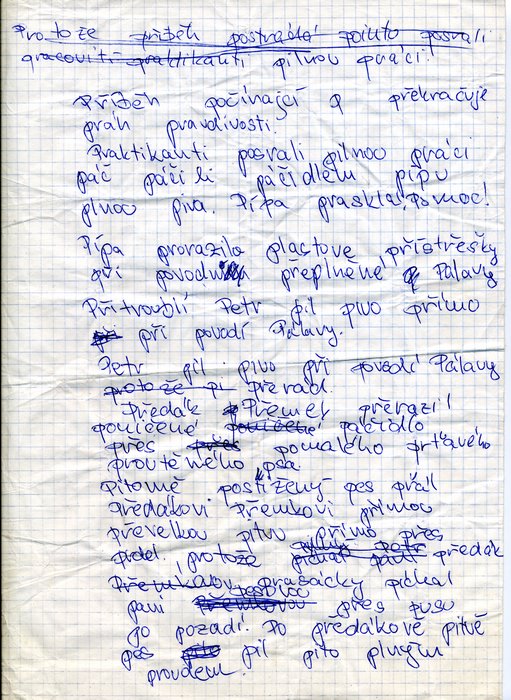 Protože příběh postrádá pointu posrali
pracovití praktikanti pilnou práci!
Příběh počínající p překračuje
práh pravdivosti!
Praktikanti posrali pilnou práci
páč páčili páčidlem pípu
plnou piva. Pípa praskla! Pomoc!
Pípa prorazila plastové přístřešky
při povodni přeplněné Pálavy
Přitroublý Petr pil pivo přímo
při povodí Pálavy.
Petr pil pivo při povodí Pálavy
protože pi přerad.
Předák Přemek přerazil
poničené páčidlo
přes pomalého prťavého
proutěného psa
Pitomě postižený pes přál
předákovi Přemkovi přímou
převelkou pitvu přímo přes
prdel protože předák
Přemkovou prasácky píchal
paní Pestrou přes pusu
po pozadí. Po předákově pitvě
pes pil pito plným
proudem.